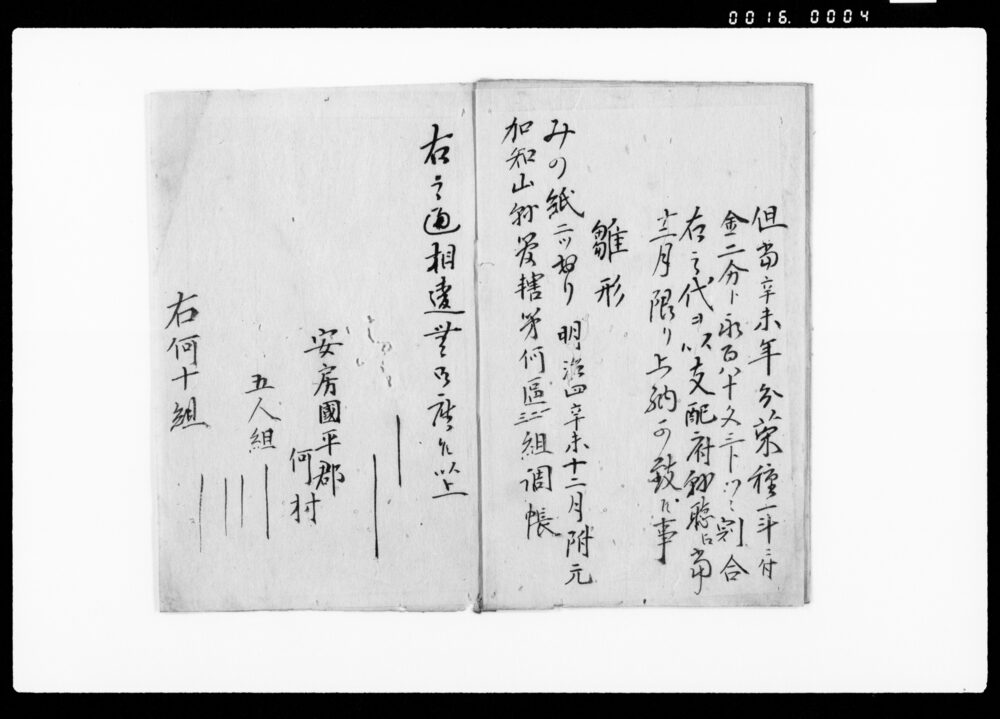 0016. 0004
但当辛未年分菜種一斗ニ付
金二分ト永百八十文三トツヽ割合
右之代ヲ以支配府県聴江当
十二月限り上納可致候事
雛形
みの紙二ツ折り 明治四辛未十二月附元
加知山県管轄第何区三組調帳
右之通相違無御座候以上
安房國平郡
何村
五人組
右何十組